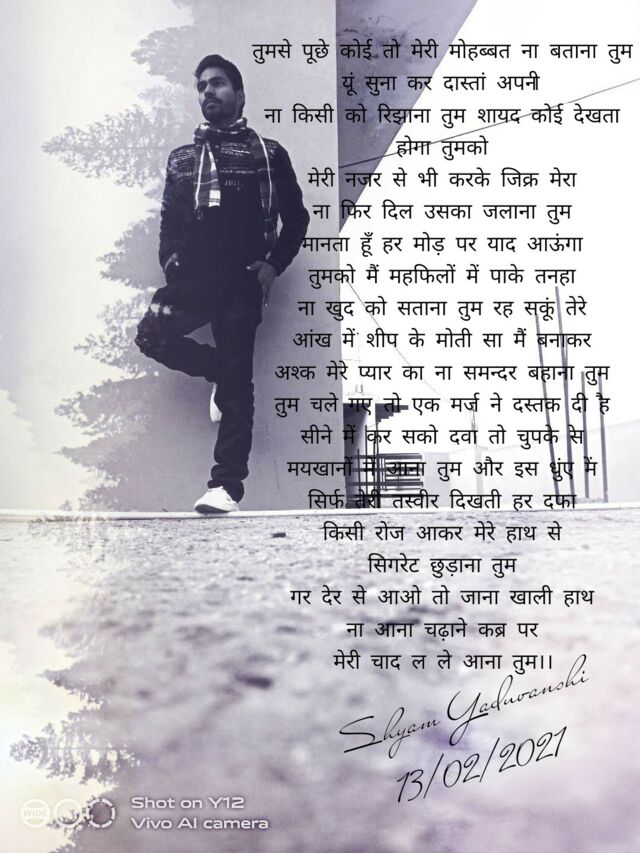 तुमसे पूछे कोई तो मेरी मोहब्बत ना बताना तुम
यूं सुना कर दास्तां अपनी
ना किसी को रिझाना तुम शायद कोई देखता
होगा तुमको
मेरी नजर से भी करके जिक्र मेरा
ना फिर दिल उसका जलाना तुम
मानता हूँ हर मोड़ पर याद आऊंगा
तुमको मैं महफिलों में पाके तनहा
ना खुद को सताना तुम रह सकूं तेरे
आंख में शीप के मोती सा मैं बनाकर
अश्क मेरे प्यार का ना समन्दर बहाना तुम
तुम चले गए तो एक मर्ज ने दस्तक दी है
सीने में कर सको दवा तो चुपके से
मयखानों में आना तुम और इस धुंए में
सिर्फ तेरी तस्वीर दिखती हर दफा
किसी रोज आकर मेरे हाथ से
सिगरेट छुड़ाना तुम
गर देर से आओ तो जाना खाली हाथ
ना आना चढ़ाने कब्र पर
मेरी चाद ल ले आना तुम।।
Shyam Yaduvanshi
13/02/2021
WIDE
Shot on Y12
Vivo AI camera